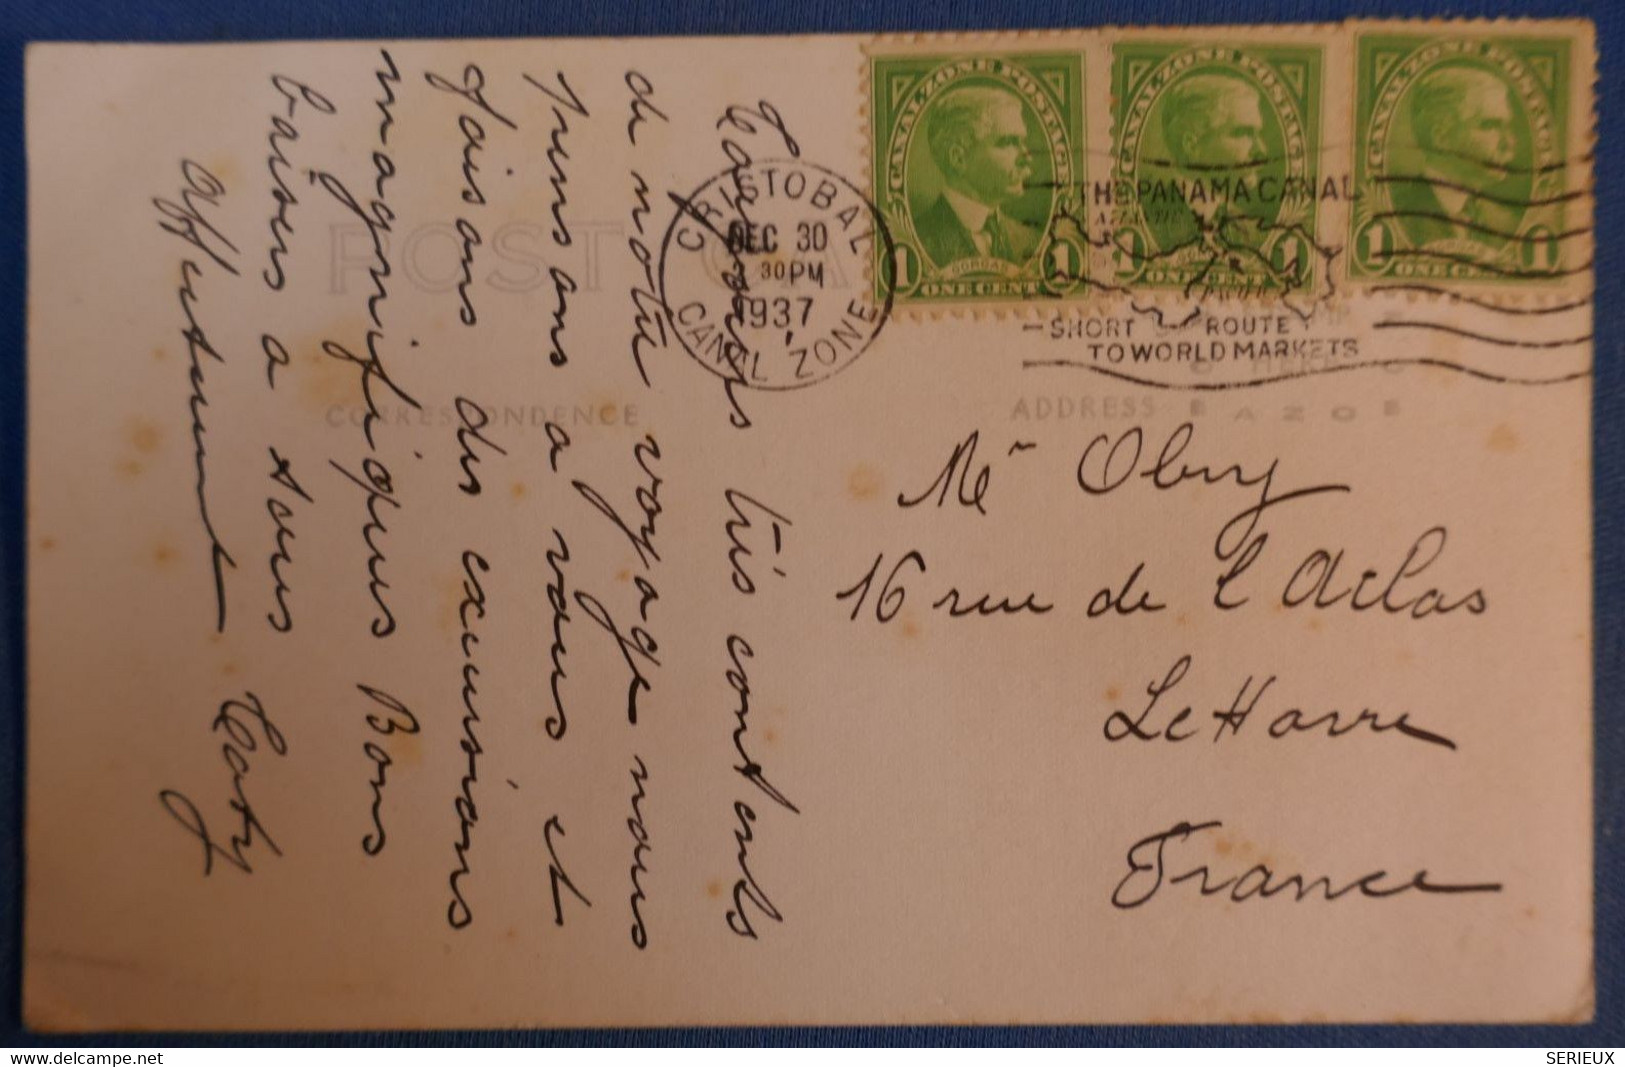 CANAL ZONE POSTAGE
CANAL ZONE POSTAGE
CANAL ZONE POSTAGE
GORGAS
1 ONE CENT 1
1 ONE CENT 1
1 ONE CENT 1
CRISTOBAL
DEC 30
30 PM
1937
CANAL ZONE
THE PANAMA CANAL
ATLANTIC
SHORT ROUTE
TO WORLD MARKETS
POST CA
CORRESPONDENCE
ADDRESS
HERE
E AZO E
très contents
de notre voyage nous
pensons a vous et
faisons des excursions
magnifiques Bons
baisers a tous
Caty
Mr Obry
16 rue de l
Le Havre
France
SERIEUX
delcampe.net